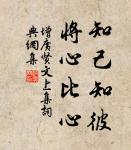 知己知彼
將心比心
增廣賢文上集詞
典網集